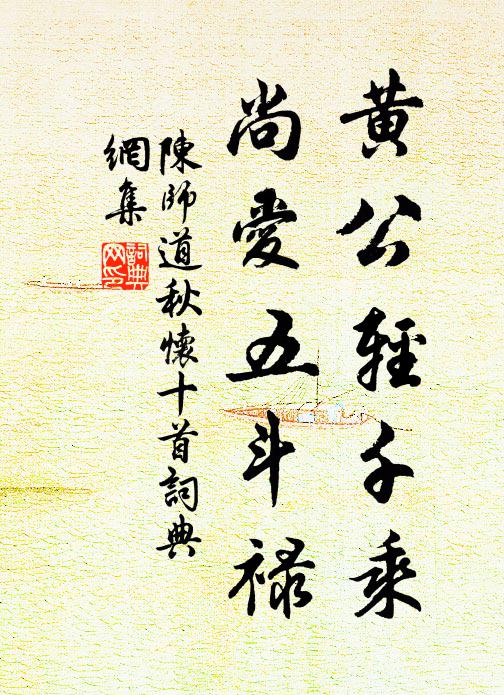 黃公輕千乘
尚愛五斗祿
陳師道秋懷十首詞典
網集
詞典
网印